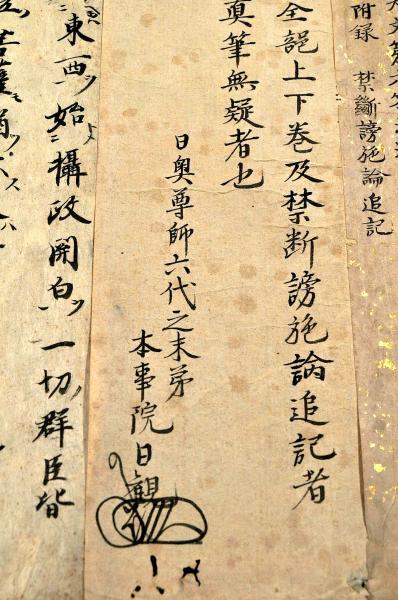 附録 禁斷謗施論追記
全部上下巻及禁断謗施論追記者
眞筆無疑者也
日奥尊師六代之末弟
本事院日觀
東西 始 攝政関白 一切群臣皆
菩薩